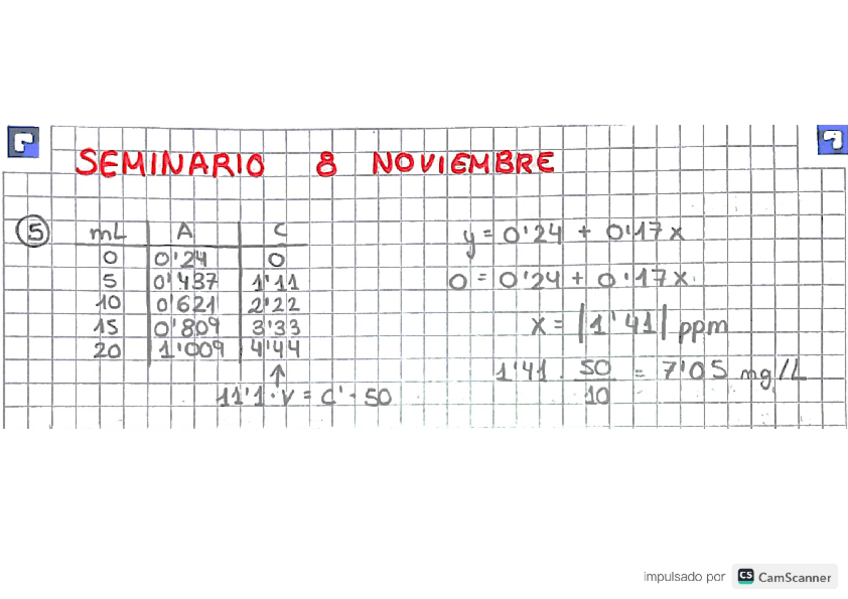 SEMINARIO 8 NOVIEMBRE
5
mL A C
0 0'24 0
5 0'437 1'11
10 0'621 2'22
15 0'809 3'33
20 1'009 4'44
↑
11'1 · V = C' · 50
y = 0'24 + 0'17 x
0 = 0'24 + 0'17 x
x = |1'41| ppm
1'41 · 50/10 = 7'05 mg/L
impulsado por CS CamScanner